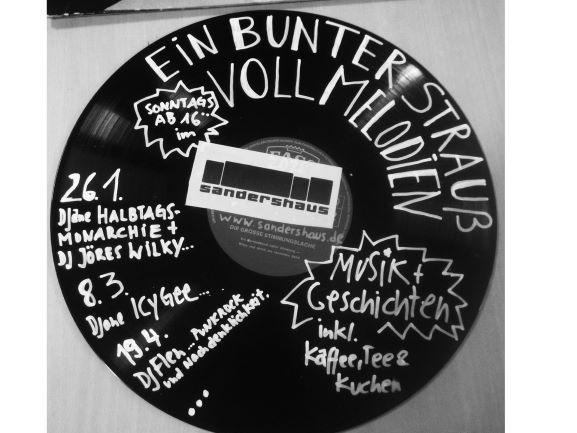 EiN BUNTER STRAUẞ
VOLL MELODiEN
SONNTAGS
AB 16...
im
sandershaus
www.sandershaus.de
DIE GROSSE STIMMUNGSLACHE
26.1.
DJane HALBTAGS-
MONARCHIE +
DJ JÖRES WILKY...
8.3.
DJane ICYGEE...
19.4.
DJ Flen... PUNKROCK
und Nachdenklichkeit.
...
MUSiK +
GeschichteN
inkl.
Kaffee, Tee &
Kuchen